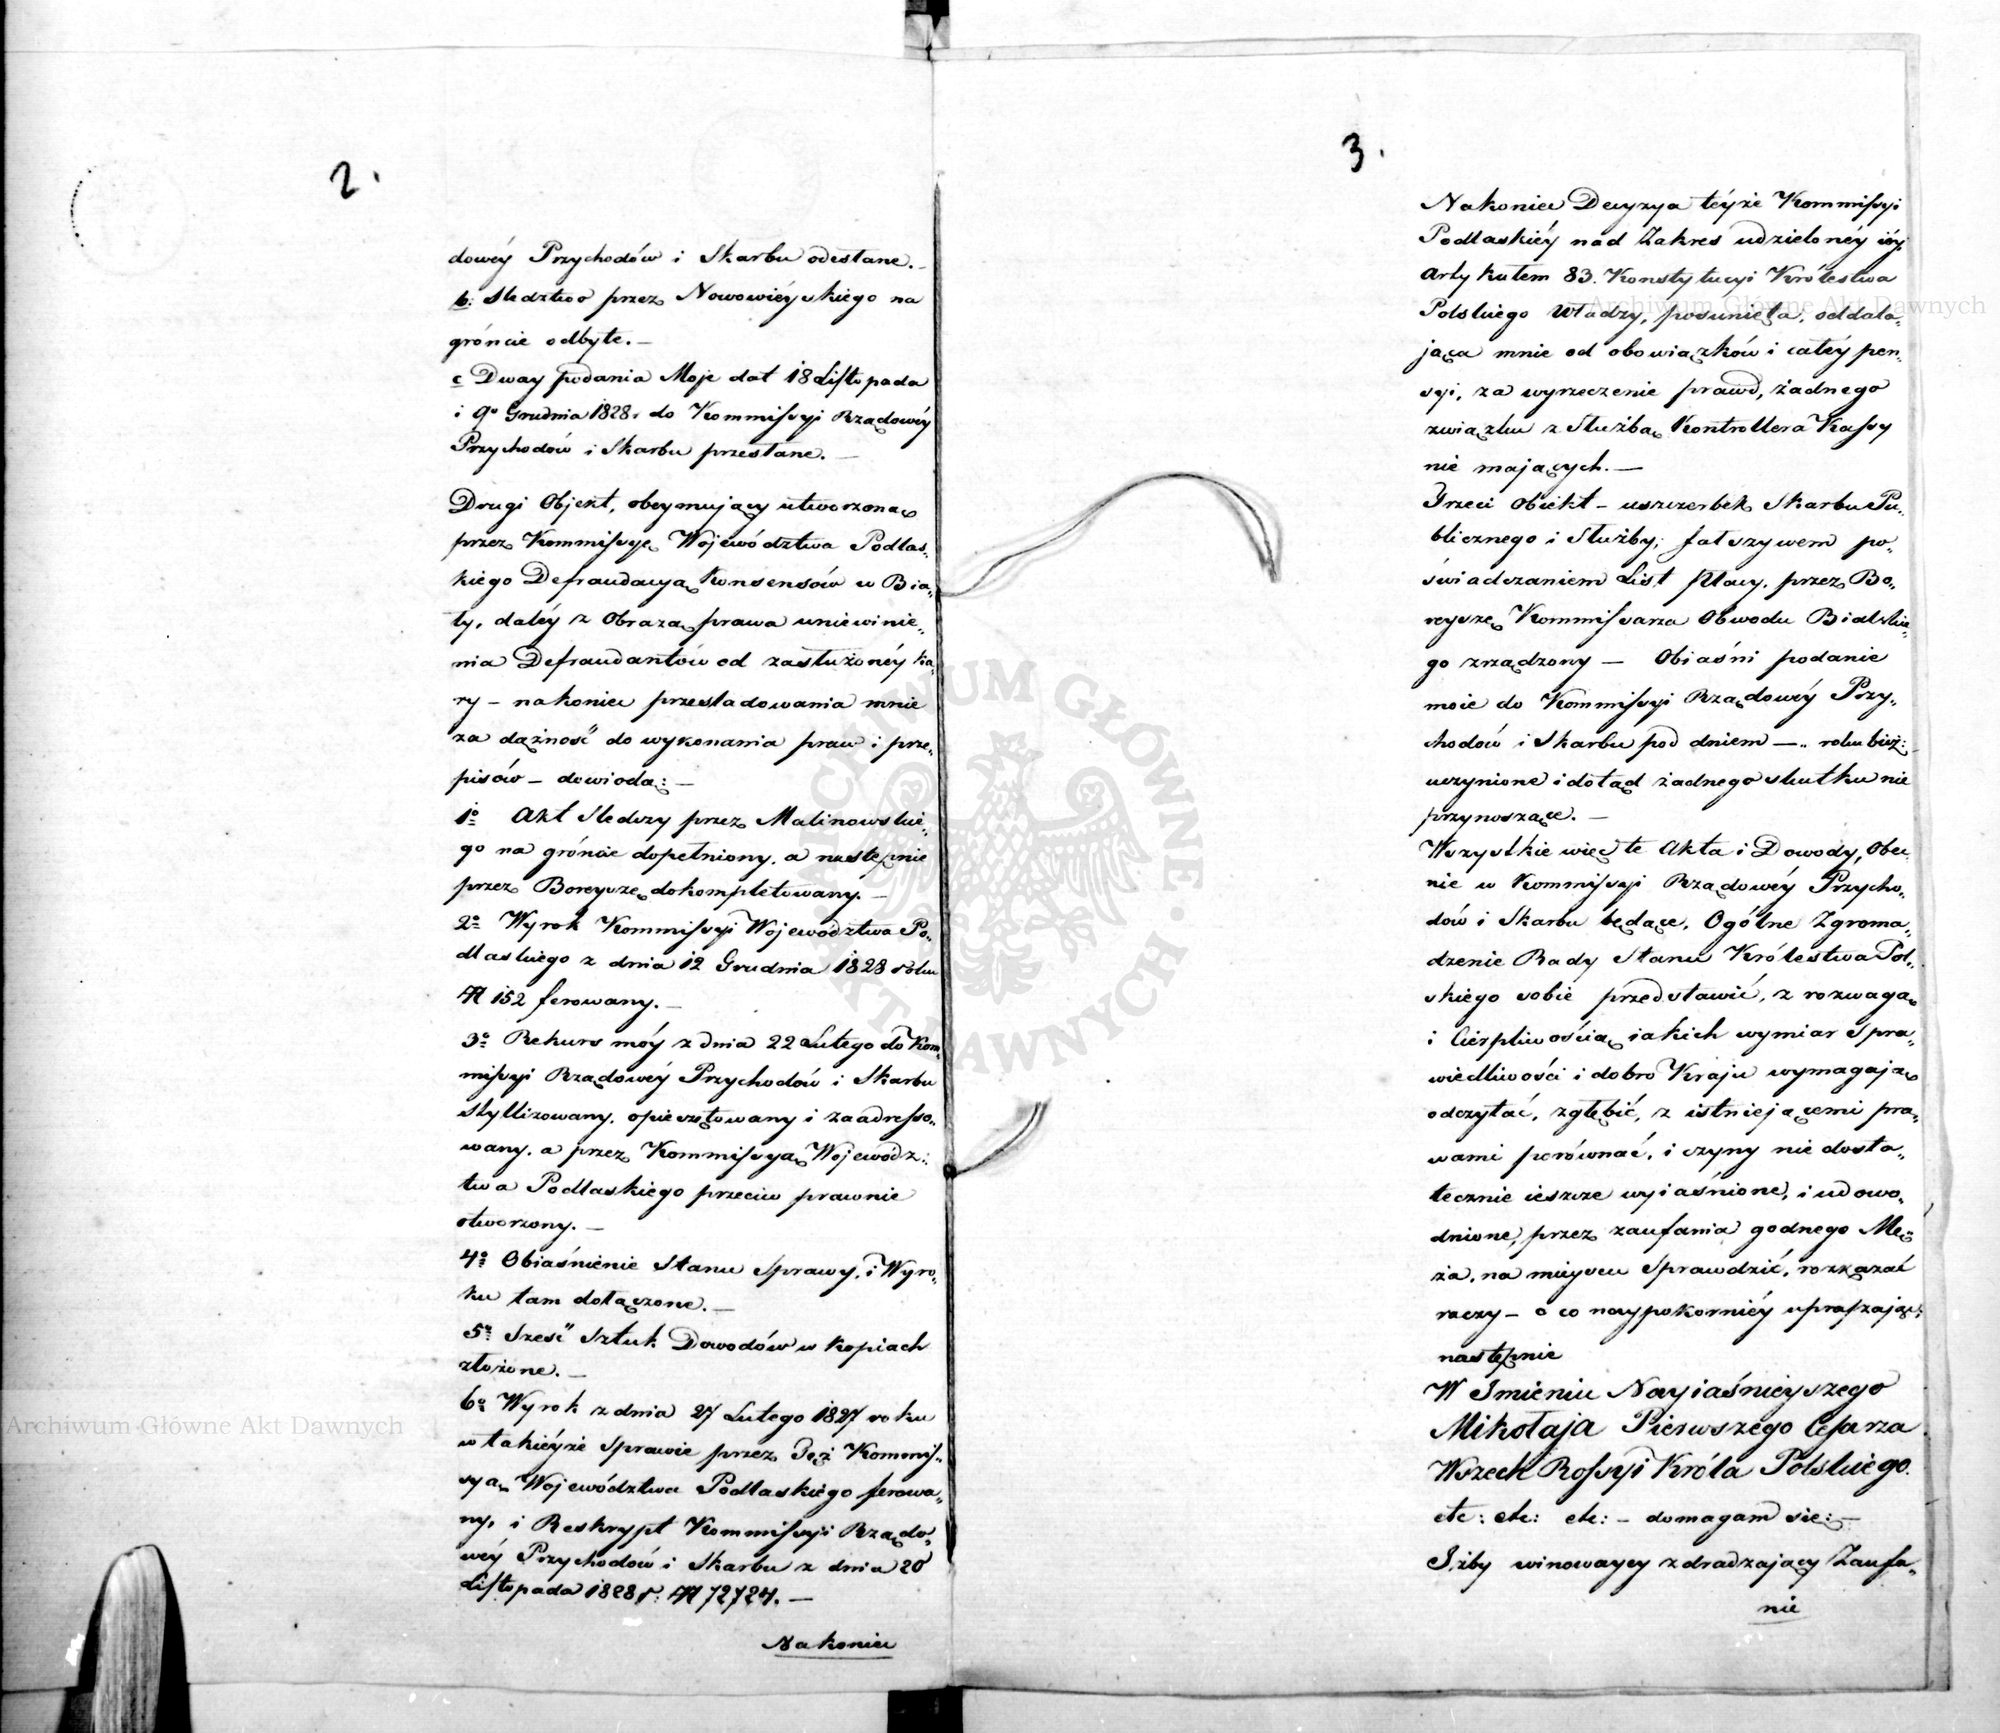 2.
dowéy Przychodów i Skarbu odesłane. —
b: Sledztwo przez Nowowiéyskiego na
gróncie odbyte. —
c Dway podania Moje dat 18 Listopada
i 9º Grudnia 1828. do Kommissyi Rządowéy
Przychodów i Skarbu przesłane. —
Drugi Objekt, obeymujący utworzoną
przez Kommissyę Województwa Podlas„
kiego Defraudacyą Konsensów w Bia„
ły, daléy z Obrazą prawa uniewinie„
nia Defraudantów od zasłużonéy ka„
ry – nakoniec przesladowania mnie
za dążność do wykonania praw i prze„
pisów – dowiodą: —
1º Akt Sledczy przez Malinowskie„
go na gróncie dopełniony, a następnie
przez Boreyszę dokompletowany. —
2º Wyrok Kommissyi Województwa Po„
dlaskiego z dnia 12 Grudnia 1828 roku
N 152 ferowany. —
3º Rekurs móy z dnia 22 Lutego do Kom„
missyi Rządowéy Przychodów i Skarbu
styllizowany, opieczętowany i zaadresso„
wany, a przez Kommissyą Wojewódz„
twa Podlaskiego przeciw prawnie
otworzony. —
4º Obiaśnienie Stanu Sprawy, i Wyro„
ku tam dołączone. —
5º Sześć Sztuk Dowodów w kopiach
złożone. —
6º Wyrok z dnia 27 Lutego 1827 roku
w takiéyże Sprawie przez Też Kommis„
syą Województwa Podlaskiégo ferowa„
ny, i Reskrypt Kommissyi Rządo„
wéy Przychodów i Skarbu z dnia 20
Listopada 1828 r: N 72724. —
Nakoniec
3.
Nakoniec Decyzya téyże Kommissyi
Podlaskiéy nad Zakres udzielonéy iéy
Artykułem 83. Konstytucyi Królestwa
Polskiego Władzy, posunięta, oddala„
jąca mnie od obowiązków i całéy pen„
syi, za wyrzeczenie prawd, żadnego
związku z Służbą Kontrollera Kassy
nie mających. —
Trzeci Obiekt – uszczerbek Skarbu Pu„
blicznego i Służby; fałszywem po„
świadczaniem List Płacy, przez Bo„
reyszę Kommissarza Obwodu Bialskie„
go zrządzony — Obiaśni podanie
moie do Kommissyi Rządowéy Przy„
chodów i Skarbu pod dniem —„ roku bież:
uczynione i dotąd żadnego skutku nie
przynoszące. —
Wszystkie więc te Akta i Dowody, Obec„
nie w Kommissyi Rządowéy Przycho„
dów i Skarbu będące, Ogólne Zgroma„
dzenie Rady Stanu Królestwa Pol„
skiego sobie przedstawić, z rozwagą
i Cierpliwością iakich wymiar Spra„
wiedliwości i dobro Kraju wymagają
odczytać, zgłębić, z istniejącemi pra„
wami porównać, i czyny nie dosta„
tecznie ieszcze wyiaśnione, i udowo„
dnione, przez zaufania godnego Mę„
ża, na mieyscu Sprawdzić, rozkazać
raczy – o co naypokorniéy upraszając:
następnie
W Imieniu Nayiaśnieyszego
Mikołaja Pierwszego Cesarza
Wszech Rossyi Króla Polskiego.
etc: etc: etc: – domagam się: —
Iżby winowaycy zdradzający Zaufa„
nie
Archiwum Główne Akt Dawnych
Archiwum Główne Akt Dawnych
ARCHIWUM GŁÓWNE AKT DAWNYCH